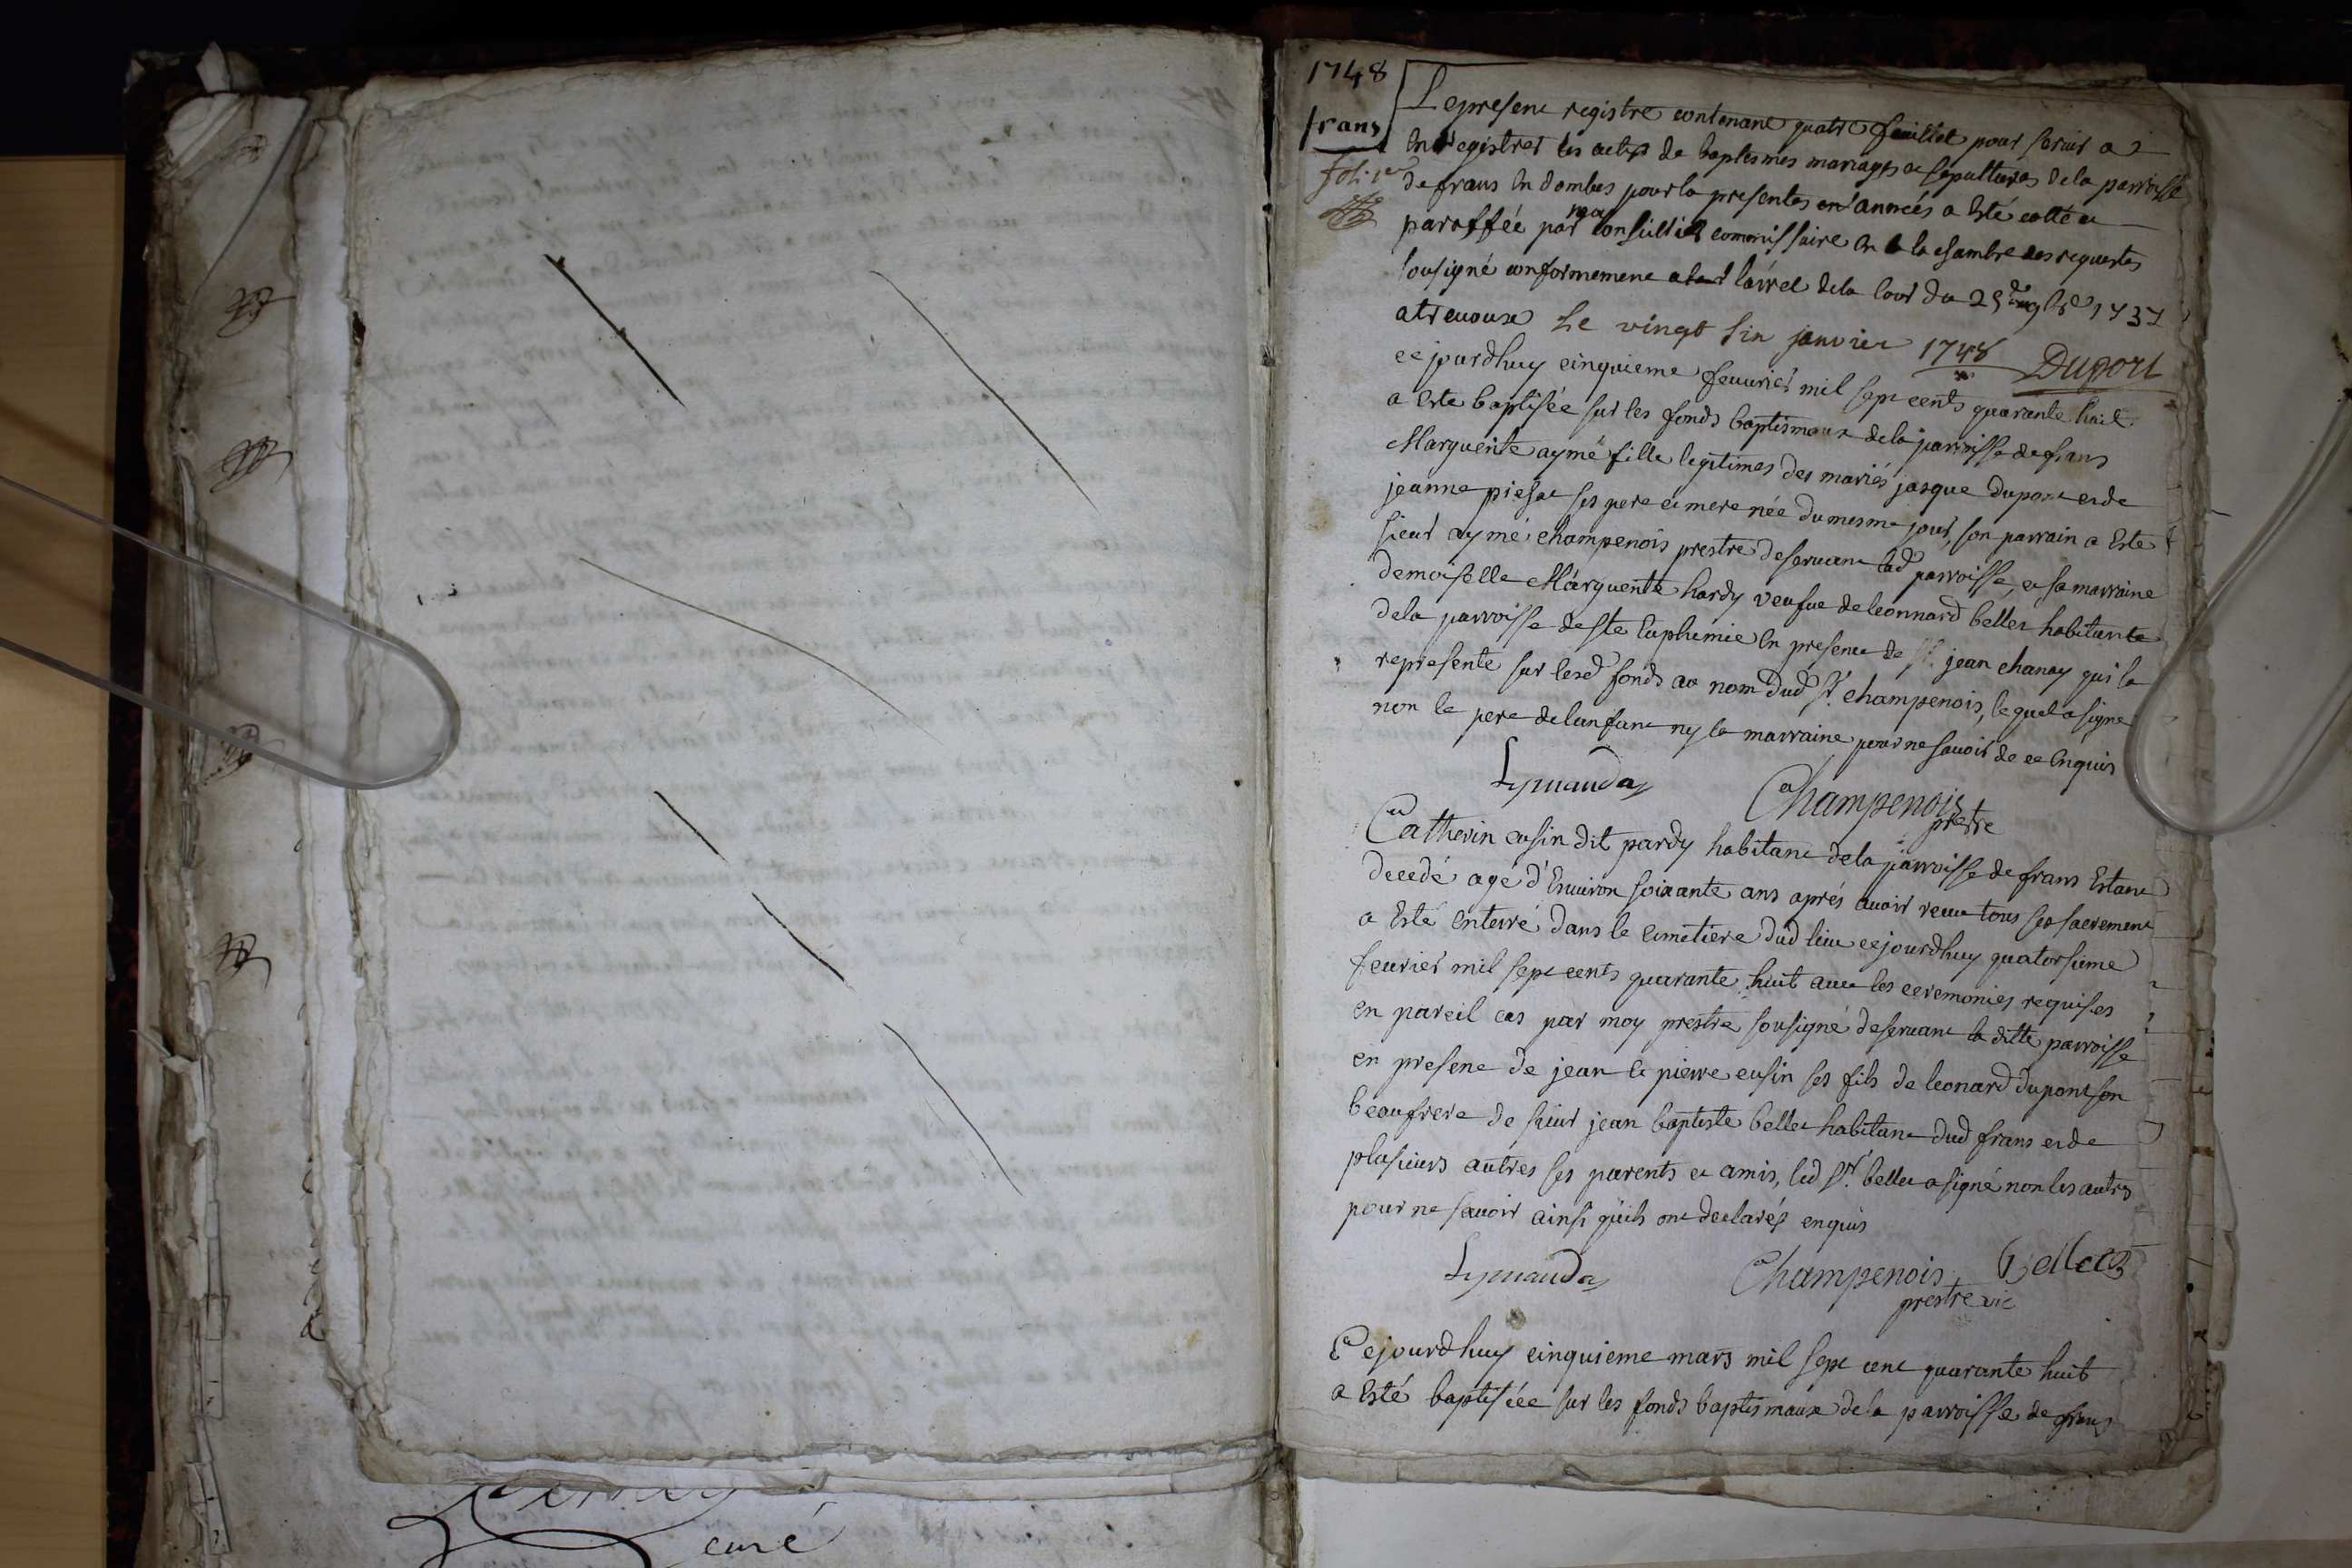 1748
frans
fol. 1er
Le present registre contenant quatre feuillet pour servir a
enregistrer les actes de baptesmes mariages et sepultures de la parroisse
de frans en dombes pour la presentes annéés a esté cotté et
paraffée par nous conseiller commissaire en la chambre des requestes
sousigné conformement a l'arret de la cour du 29 1737
a trevoux Le vingt six janvier 1748 Duport
ce jourdhuy cinquieme fevurier mil sept cents quarante huit
a este baptisée sur les fonds baptismaux de la parroisse de frans
Marguerite aymé fille legitimes des mariés jasque dupont et de
jeanne ses pere et mere née du mesme jour, son parrain a esté
sieur aymé champenois prestre deservant lad parroisse, et sa marraine
demoiselle Marguerite hardy veufue de leonnard bellet habitante
de la parroisse de ste Euphemie en presence de jean chanay qui la
represente sur lesd fonds au nom dud Sr. champenois, lequel a signe
non le pere de lanfant ny la marraine pour ne savoir de ce enquis
Champenois
prestre
Catherin cusin dit pardy habitant de la parroisse de frans Estant
decedé agé d'Environ soixante ans aprés avoir receu tous ses sacrement
a Esté Enterré dans le cimetiere dud lieu cejourdhuy quatorsieme
fevrier mil sept cents quarante huit avec les ceremonies requises
en pareil cas par moy prestre sousigné deservant la ditte parroisse
en presence de jean et pierre cusin ses fils de leonard dupont son
beaufrere de sieur jean baptiste bellet habitant dud frans et de
plusieurs autres ses parents et amis, led Sr. bellet a signé non les autres
pour ne savoir ainsi quils ont declarés enquis
Champenois Bellet
prestre vic
Cejourdhuy cinquieme mars mil sept cent quarante huit
a Esté baptiséé sur les fonds baptismaux de la parroisse de frans
curé